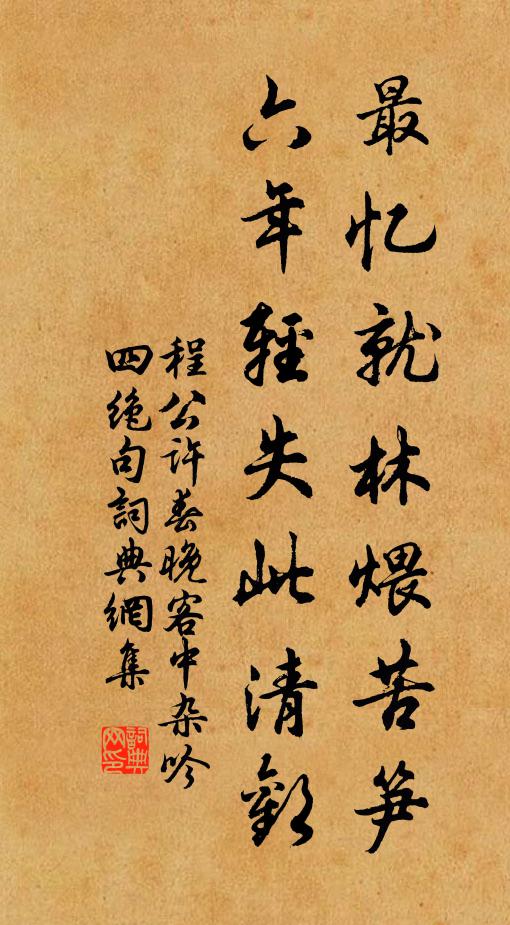 最忆就林煨苦笋
六年輕失此清歡
程公许春晚客中杂吟
四绝句詞典網集
詞典网印